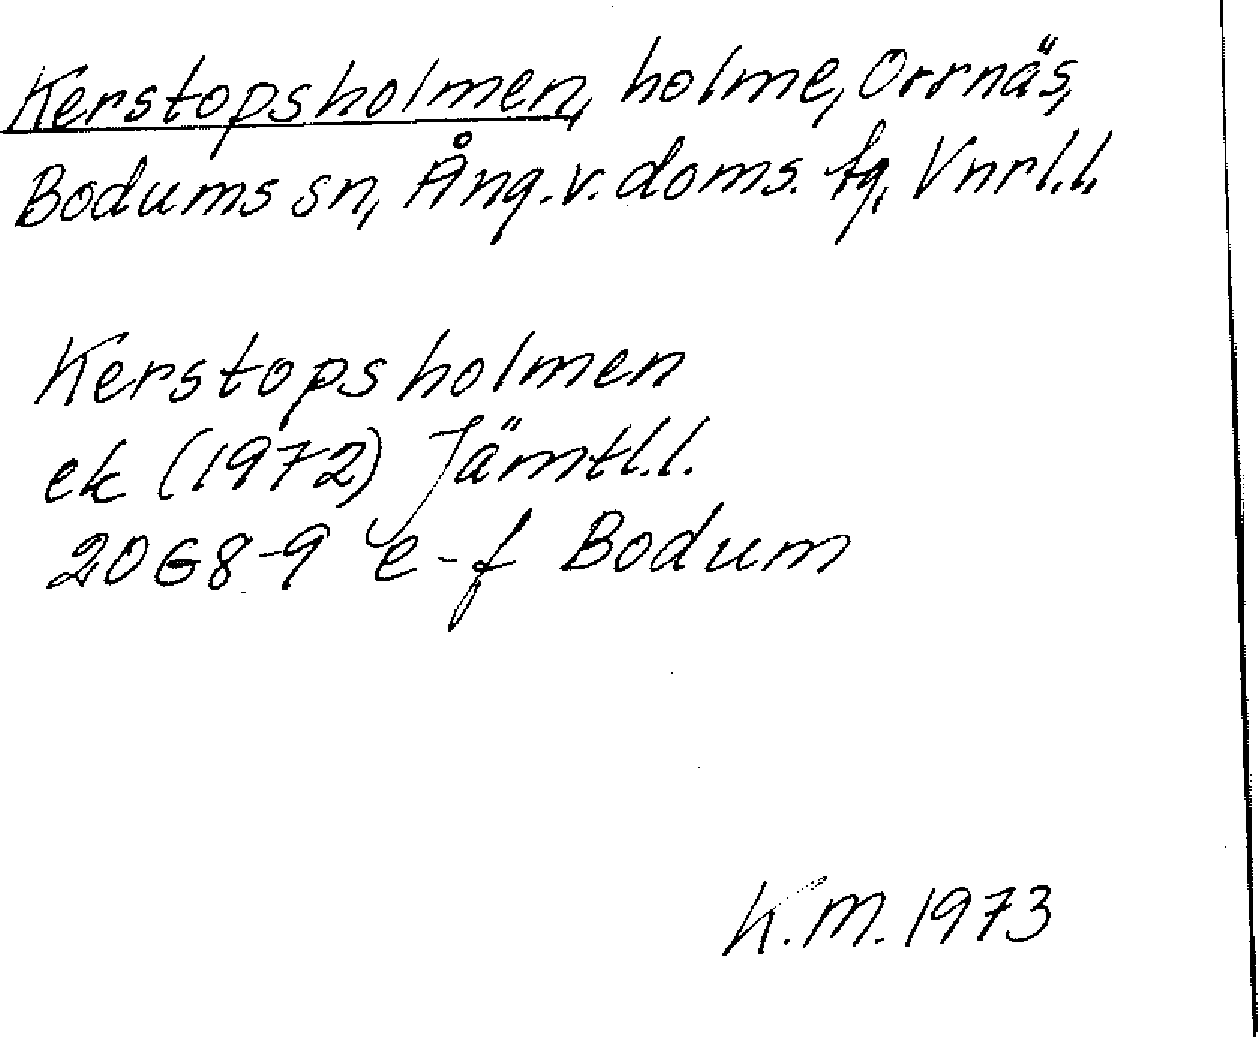 Kerstopsholmen, holme, Orrnäs,
Bodums sn, Ång.v.doms. fg, Vnrl.l.
Kerstopsholmen
ek (1972) Jämtl.l.
20G8-9 e-f Bodum
K.M. 1973